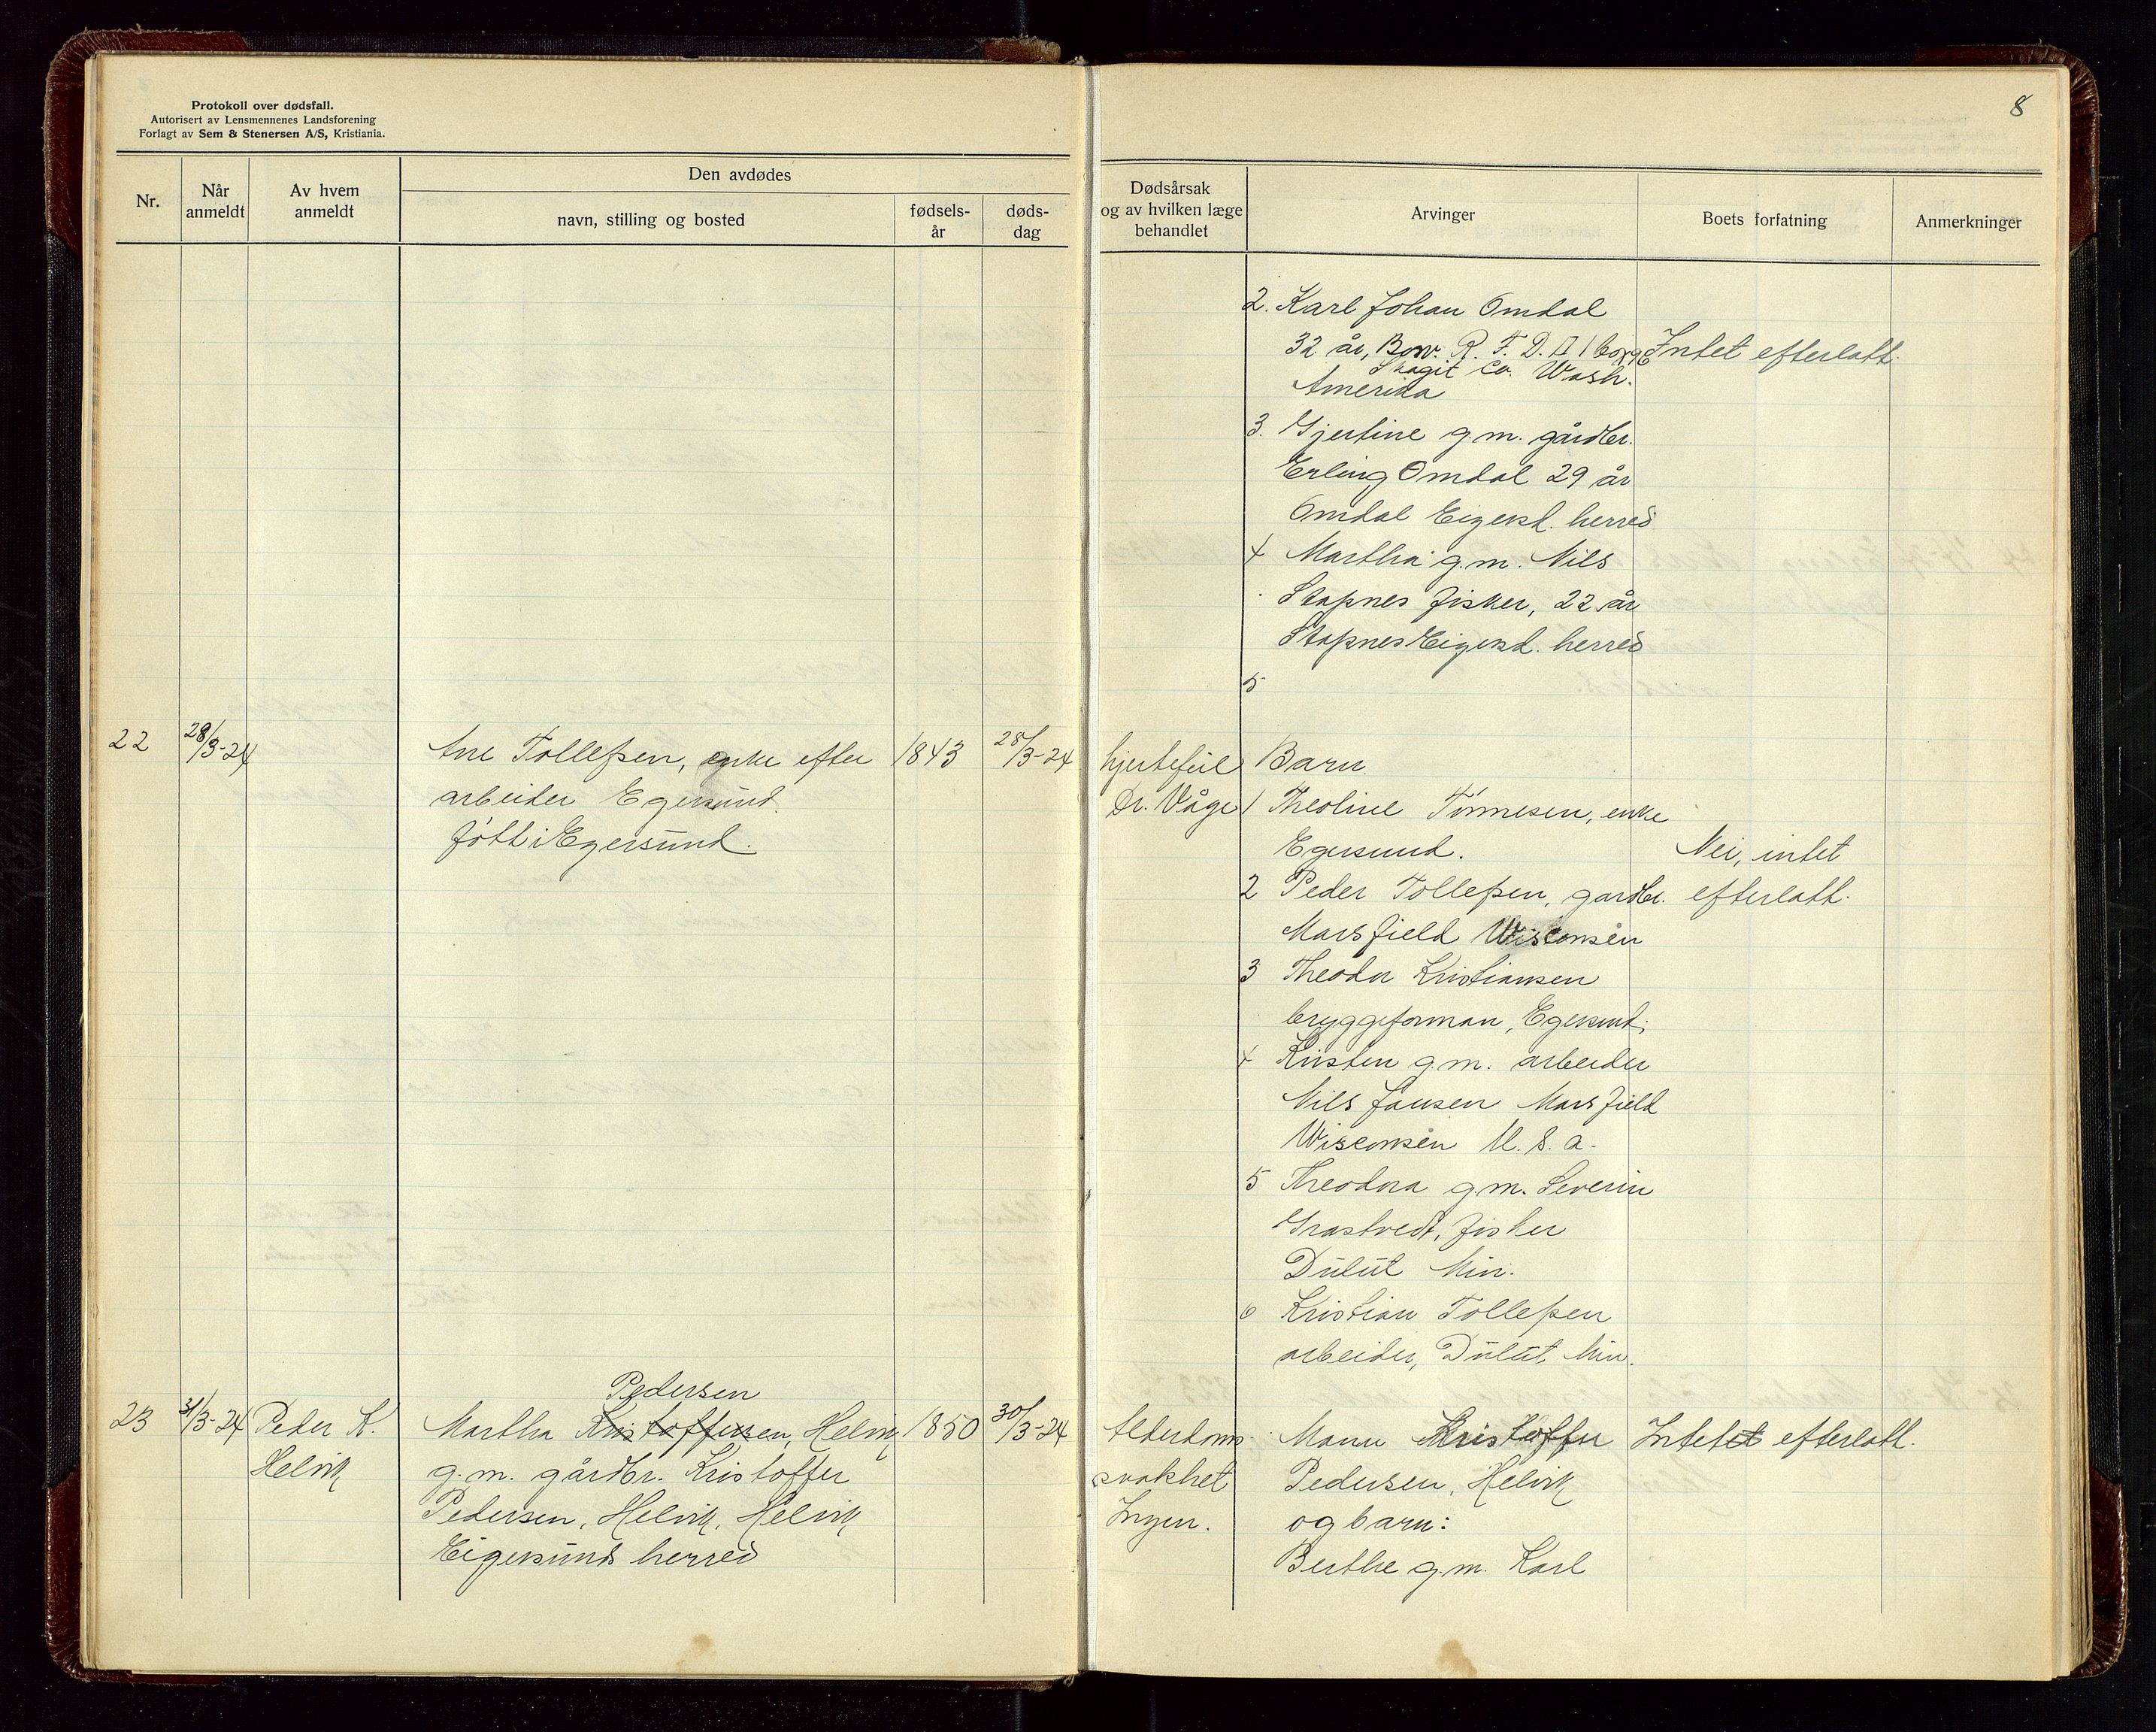 Protokoll over dødsfall.
Autorisert av Lensmennenes Landsforening
Forlagt av Sem & Stenersen A/S, Kristiania.
8
Nr.
Når anmeldt
Av hvem anmeldt
Den avdødes
navn, stilling og bosted
fødsels-år
døds-dag
Dødsårsak og av hvilken læge behandlet
Arvinger
Boets forfatning
Anmerkninger
2. Karl Johan Omdal
32 år, R. F. D.
Skagit Co. Wash.
Amerika
Intet efterlatt.
3. Gjertine g.m. gårdbr.
Erling Omdal 29 år
Omdal Eigersd. herred
4 Martha g.m. Nils
Stapnes fisker, 22 år
Stapnes Eigersd. herred
5
22 28/3-24 Ane Tollefsen, enke efter 1843 28/3-24 hjertefeil Barn
arbeider Egersund. Dr. Våge 1 Theoline Tønnesen, enke
født i Egersund. Egersund. Nei, intet
2 Peder Tollefsen, gardbr. efterlatt.
Marsfield Wisconsin
3 Theodor Kristiansen
bryggeforman, Egersund.
4 Kristen g.m. arbeider
Nils Jansen Marsfield
Wisconsin U.S.a.
5 Theodora g.m. Severin
Grastvedt, fisker
Dulut Min.
6 Kristian Tollefsen
arbeider, Dulut, Min.
Pedersen
23 31/3-24 Peder K. Martha Kristoffersen, Helvik 1850 30/3-24 Alderdoms- Mann Kristoffer Intet efterlatt.
Helvik g.m. gårdbr. Kristoffer svakhet Pedersen, Helvik
Pedersen, Helvik, Helvik Ingen. og barn:
Eigersunds herred Berthe g.m. Karl